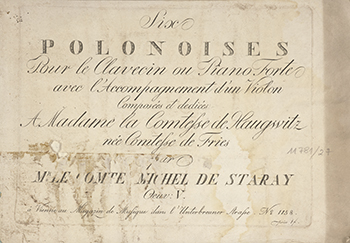 Six
POLONOISES
Pour le Clavecin ou Piano Forte
avec l'Accompagnement d'un Violon
Composées et dediées
A Madame la Comtesse de Haugwitz
née Comtesse de Fries
par
Mr LE COMTE MICHEL DE STARAY
Oeuv: V.
Vienne au Magazin de Musique dans l'Unterbrenner Strasse No 1158